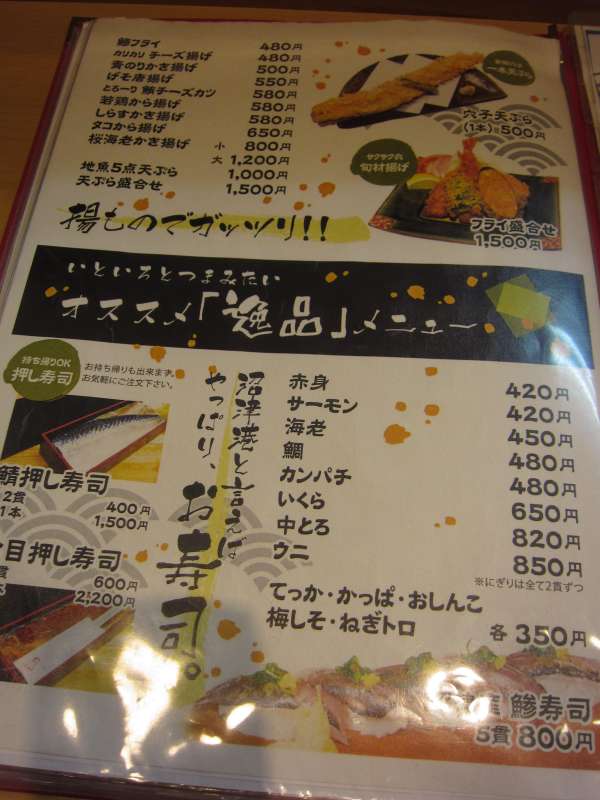 鯵フライ 480円
カリカリ チーズ揚げ 480円
青のりかき揚げ 500円
げそ唐揚げ 550円
とろーり 鯵チーズカツ 580円
若鶏から揚げ 580円
しらすかき揚げ 580円
タコから揚げ 650円
桜海老かき揚げ 小 800円
大 1,200円
地魚5点天ぷら 1,000円
天ぷら盛合せ 1,500円
一本天ぷら
穴子天ぷら
(1本) 500円
サクサクの
旬材揚げ
フライ盛合せ
1,500円
揚ものでガッツリ!!
いろいろとつまみたい
オススメ「逸品」メニュー
持ち帰りOK
押し寿司
お持ち帰りも出来ます。
お気軽にご注文下さい。
鯖押し寿司
2貫 400円
1本 1,500円
目押し寿司
貫 600円
2,200円
沼津港と言えば
やっぱり、お寿司。
赤身 420円
サーモン 420円
海老 450円
鯛 480円
カンパチ 480円
いくら 650円
中とろ 820円
ウニ 850円
※にぎりは全て2貫ずつ
てっか・かっぱ・おしんこ
梅しそ・ねぎトロ 各 350円
鯵寿司
5貫 800円